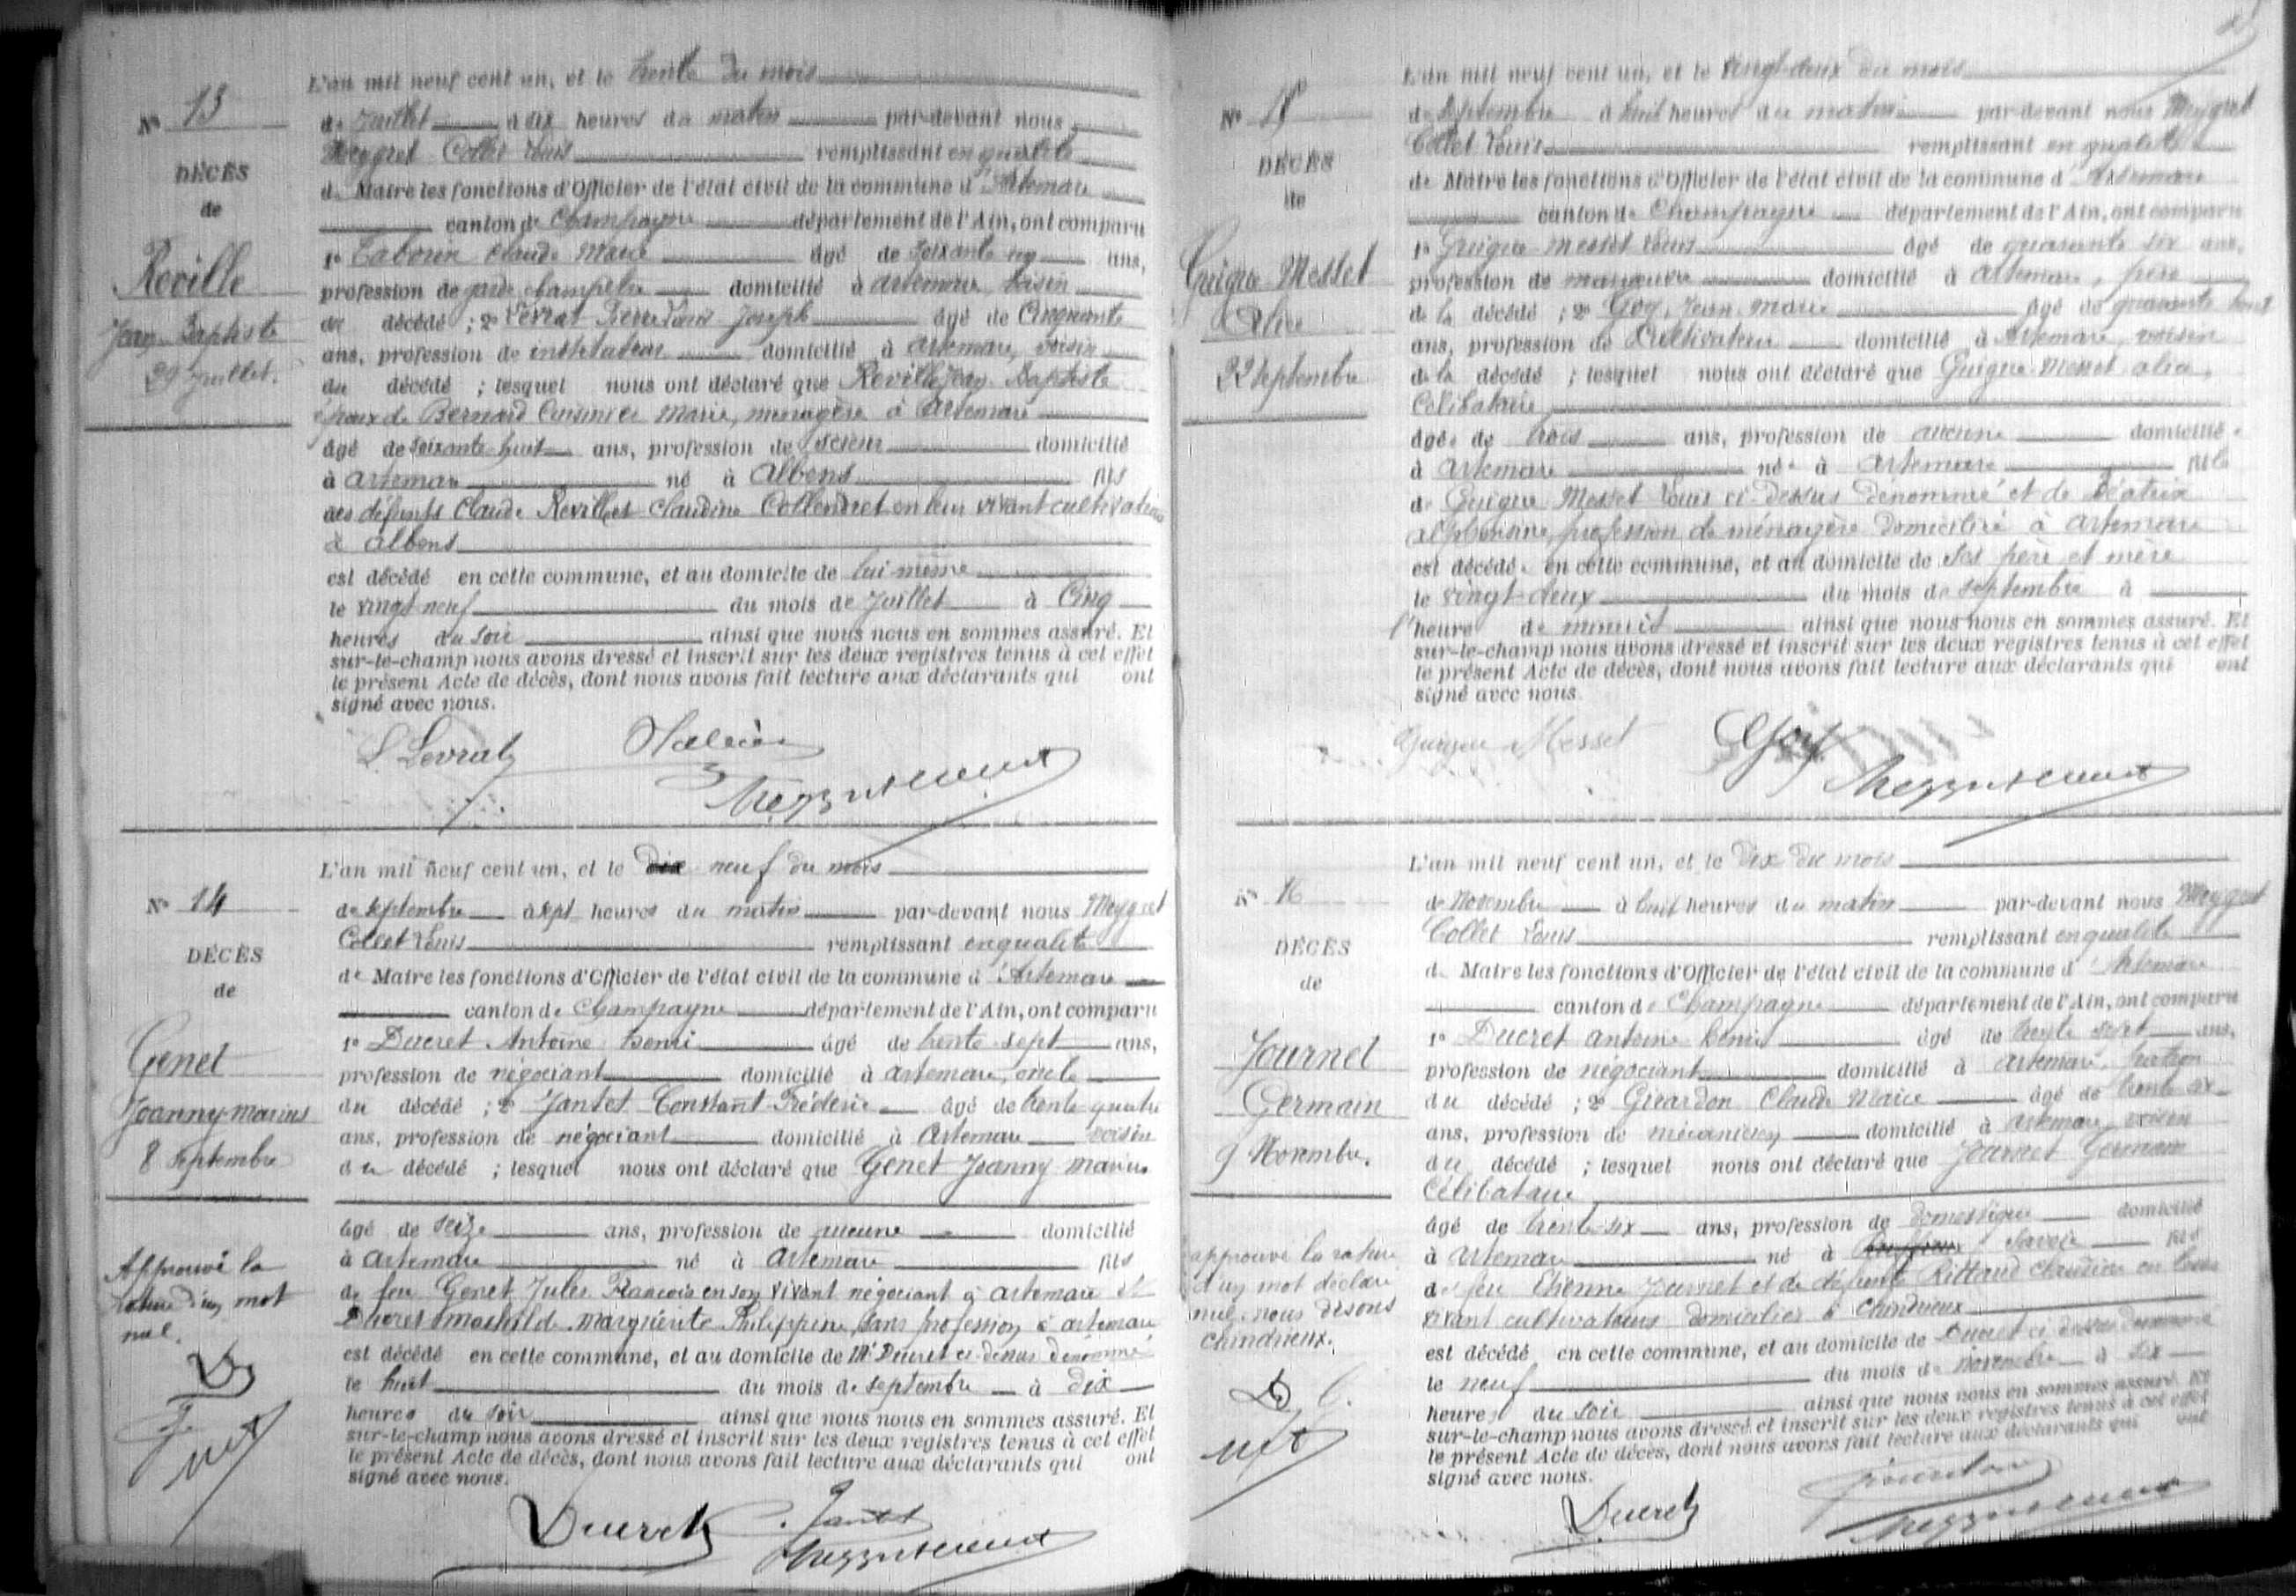 N° 13
DÉCÈS
de
Reville
Jean Baptiste
29 Juillet.
L'an mil neuf cent un, et le trente du mois
de Juillet à six heures du matin par-devant nous
Meygret Collet Louis remplissant en qualité
de Maire les fonctions d'Officier de l'état civil de la commune d'Artemare
canton de Champagne département de l'Ain, ont comparu
1° Taborin Claude Marie âgé de soixante un ans,
profession de garde champêtre domicilié à Artemare, voisin
du décédé ; 2° Levrat Pierre Louis Joseph âgé de Cinquante
ans, profession de instituteur domicilié à Artemare, voisin
du décédé ; lesquel nous ont déclaré que Reville Jean Baptiste
époux de Bernard Cuisinier Marie, ménagère à Artemare
âgé de soixante huit ans, profession de scieur domicilié
à Artemare né à Albens fils
des défunts Claude Reville et Claudine Collendret en leur vivant cultivateurs
à Albens
est décédé en cette commune, et au domicile de lui-même
le vingt neuf du mois de Juillet à Cinq
heures du soir ainsi que nous nous en sommes assuré. Et
sur-le-champ nous avons dressé et inscrit sur les deux registres tenus à cet effet
le présent Acte de décès, dont nous avons fait lecture aux déclarants qui ont
signé avec nous.
L. Levrat
N° 14
DÉCÈS
de
Genet
Joanny-Marius
8 Septembre
Approuvé la
rature d'un mot
nul.
L'an mil neuf cent un, et le dix neuf du mois
de Septembre à sept heures du matin par-devant nous Meygret
Collet Louis remplissant en qualité
de Maire les fonctions d'Officier de l'état civil de la commune d'Artemare
canton de Champagne département de l'Ain, ont comparu
1° Ducret Antoine Henri âgé de trente sept ans,
profession de négociant domicilié à Artemare, oncle
du décédé ; 2° Jantet Constant Frédéric âgé de trente quatre
ans, profession de négociant domicilié à Artemare voisin
du décédé ; lesquel nous ont déclaré que Genet Joanny Marius
âgé de seize ans, profession de aucune domicilié
à Artemare né à Artemare fils
de feu Genet Jules François en son vivant négociant à Artemare et
Ducret Mathilde Marguerite Philippine, sans profession à Artemare
est décédé en cette commune, et au domicile de Mr Ducret ci-dessus dénommé
le huit du mois de septembre à dix
heures du soir ainsi que nous nous en sommes assuré. Et
sur-le-champ nous avons dressé et inscrit sur les deux registres tenus à cet effet
le présent Acte de décès, dont nous avons fait lecture aux déclarants qui ont
signé avec nous.
Ducret C. Jantet
N° 15
DÉCÈS
de
Guigue-Messet
Alice
22 Septembre
L'an mil neuf cent un, et le vingt-deux du mois
de Septembre à huit heures du matin par-devant nous Meygret
Collet Louis remplissant en qualité
de Maire les fonctions d'Officier de l'état civil de la commune d'Artemare
canton de Champagne département de l'Ain, ont comparu
1° Guigue-Messet Louis âgé de quarante six ans,
profession de manœuvre domicilié à Artemare, père
de la décédé ; 2° Goy, Jean Marie âgé de quarante huit
ans, profession de Cultivateur domicilié à Artemare, voisin
de la décédé ; lesquel nous ont déclaré que Guigue-Messet Alice,
Célibataire
âgée de trois ans, profession de aucune domiciliée
à Artemare née à Artemare fille
de Guigue Messet Louis ci-dessus dénommé et de Béatrix
Alphonsine, profession de ménagère domiciliée à Artemare
est décédée en cette commune, et au domicile de ses père et mère
le vingt-deux du mois de septembre à
l'heure de minuit ainsi que nous nous en sommes assuré. Et
sur-le-champ nous avons dressé et inscrit sur les deux registres tenus à cet effet
le présent Acte de décès, dont nous avons fait lecture aux déclarants qui ont
signé avec nous.
Guigue Messet Goy
N° 16
DÉCÈS
de
Journet
Germain
9 Novembre.
approuvé la rature
d'un mot déclaré
nul, nous disons
Chindrieux.
L'an mil neuf cent un, et le dix du mois
de Novembre à huit heures du matin par-devant nous Meygret
Collet Louis remplissant en qualité
de Maire les fonctions d'Officier de l'état civil de la commune d'Artemare
canton de Champagne département de l'Ain, ont comparu
1° Ducret Antoine Henri âgé de trente sept ans,
profession de négociant domicilié à Artemare, patron
du décédé ; 2° Girardon Claude Marie âgé de trente six
ans, profession de mécanicien domicilié à Artemare voisin
du décédé ; lesquel nous ont déclaré que Journet Germain
Célibataire
âgé de trente-six ans, profession de domestique domicilié
à Artemare né à Savoie fils
de feu Etienne Journet et de défunte Rittaud Claudine en leur
vivant cultivateurs domiciliés à Chindrieux
est décédé en cette commune, et au domicile de Ducret ci-dessus dénommé
le neuf du mois de novembre à six
heures du soir ainsi que nous nous en sommes assuré. Et
sur-le-champ nous avons dressé et inscrit sur les deux registres tenus à cet effet
le présent Acte de décès, dont nous avons fait lecture aux déclarants qui ont
signé avec nous.
Ducret